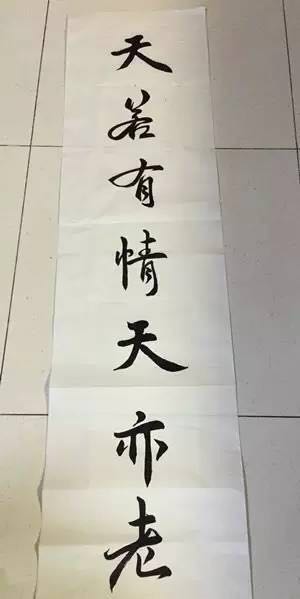 天若有情天亦老